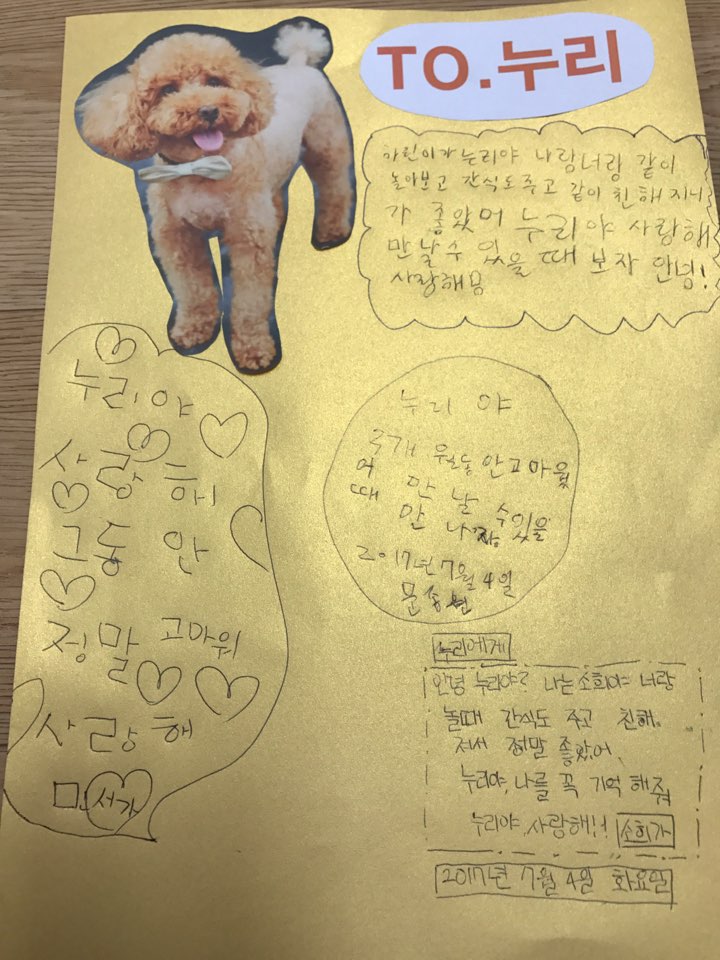 TO.누리
가린이가 누리야 나랑너랑 같이
놀아보고 간식도주고 같이 친해지니
가 좋았어 누리야 사랑해
만날수 있을때 보자 안녕!
사랑해용
누리야
사랑해
그동안
정말 고마워
사랑해
민서가
누리야
3개월동안고마웠
어 만날 수있을
때 만나장
2017년7월4일
누리에게
안녕 누리야? 나는 소희야 너랑
놀때 간식도 주고 친해
저서 정말 좋았어.
누리야, 나를 꼭 기억 해줘
누리야, 사랑해!! 소희가
2017년 7월 4일 화요일